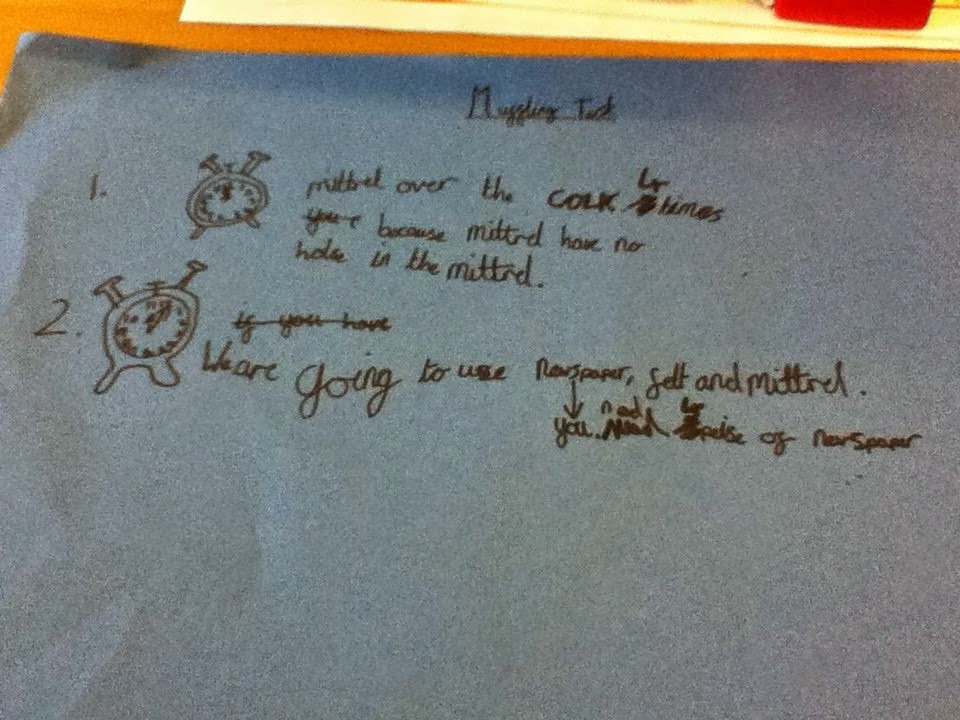 Muggling Test
1. mittrel over the COLK 4 times
you because mittrel have no
hole in the mittrel.
2. if you have
We are going to use newspaper, felt and mittrel.
you need 4 peise of newspaper